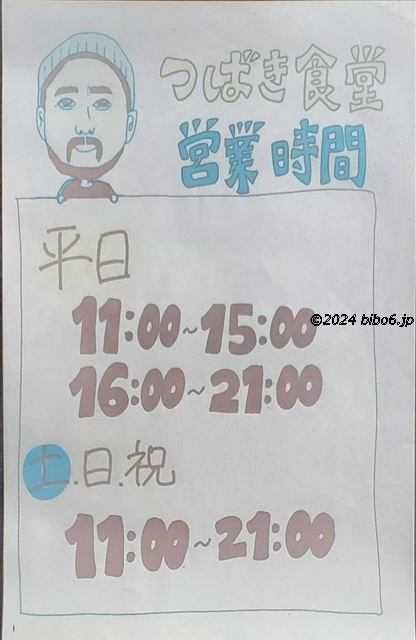 つばき食堂
営業時間
平日
11:00~15:00
©2024 bibo6.jp
16:00~21:00
土.日.祝
11:00~21:00